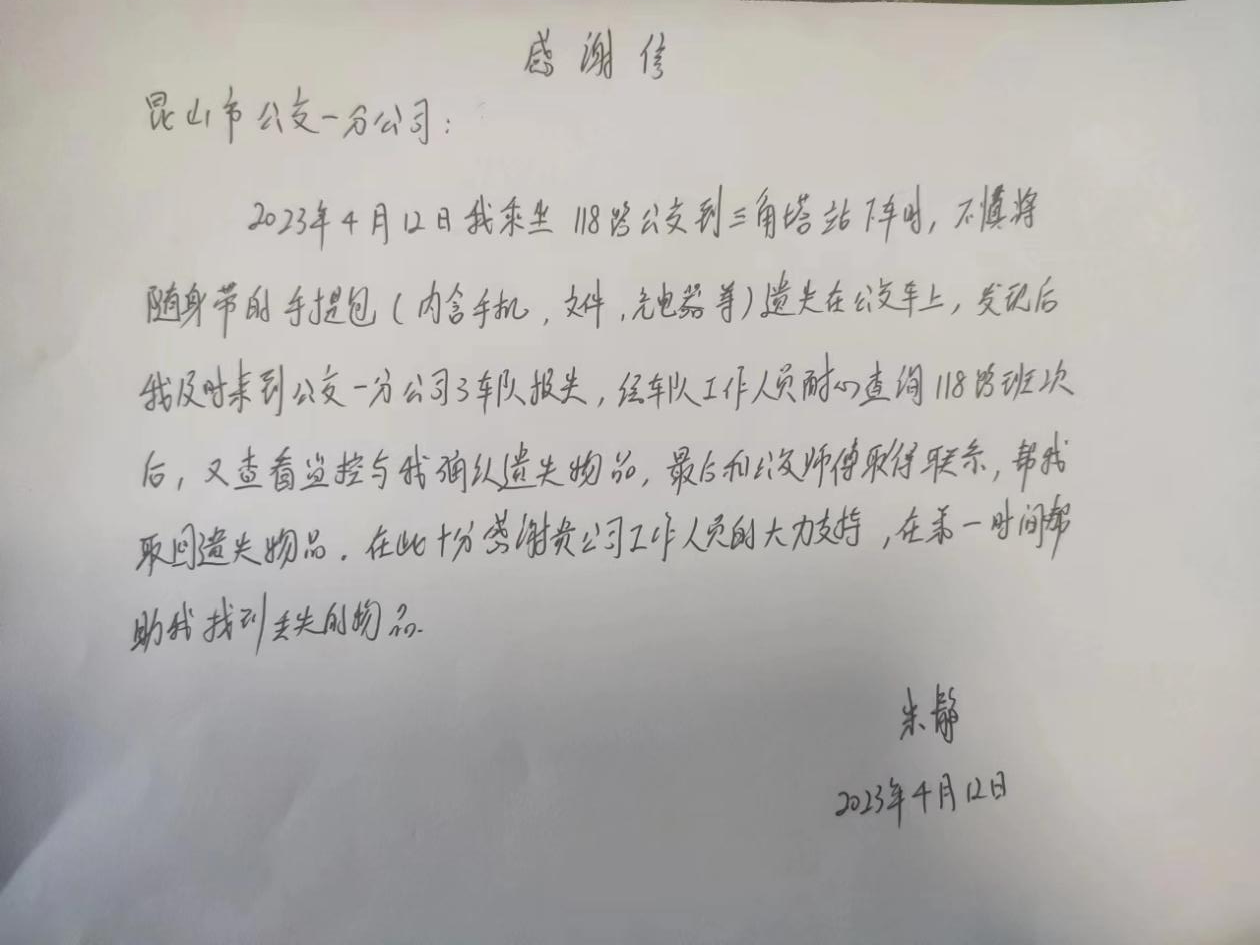 感谢信
昆山市公交一分公司：
2023年4月12日我乘坐118路公交到三角塔站下车时，不慎将
随身带的手提包（内含手机，文件，充电器等）遗失在公交车上，发现后
我及时来到公交一分公司3车队报失，经车队工作人员耐心查询118路班次
后，又查看监控与我确认遗失物品，最后和公交师傅取得联系，帮我
取回遗失物品。在此十分感谢贵公司工作人员的大力支持，在第一时间帮
助我找到丢失的物品。
朱静
2023年4月12日